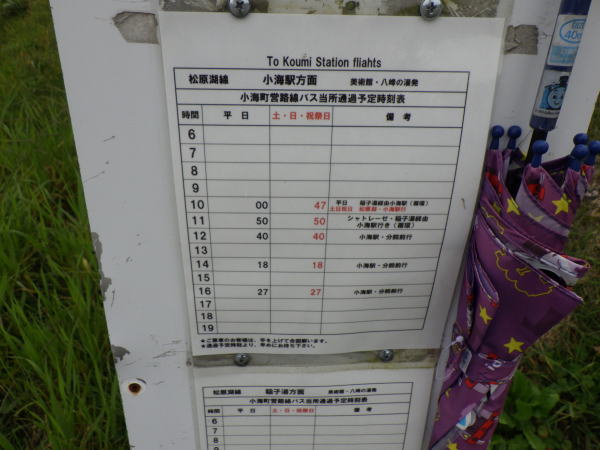 To Koumi Station fliahts
松原湖線 小海駅方面 美術館・八峰の湯発
小海町営路線バス当所通過予定時刻表
時間 平日 土・日・祝祭日 備考
6
7
8
9
10 00 47 平日 稲子湯経由小海駅(循環)
土日祝日 松原湖・小海駅行
11 50 50 シャトレーゼ・稲子湯経由
小海駅行き(循環)
12 40 40 小海駅・分館前行
13
14 18 18 小海駅・分館前行
15
16 27 27 小海駅・分館前行
17
18
19
★ご乗車のお客様は、手を上げて合図願います。
★通過予定時刻より、早めにお待ち下さい。
松原湖線 稲子湯方面 美術館・八峰の湯発
小海町営路線バス当所通過予定時刻表
時間 平日 土・日・祝祭日 備考
6
7
8
9